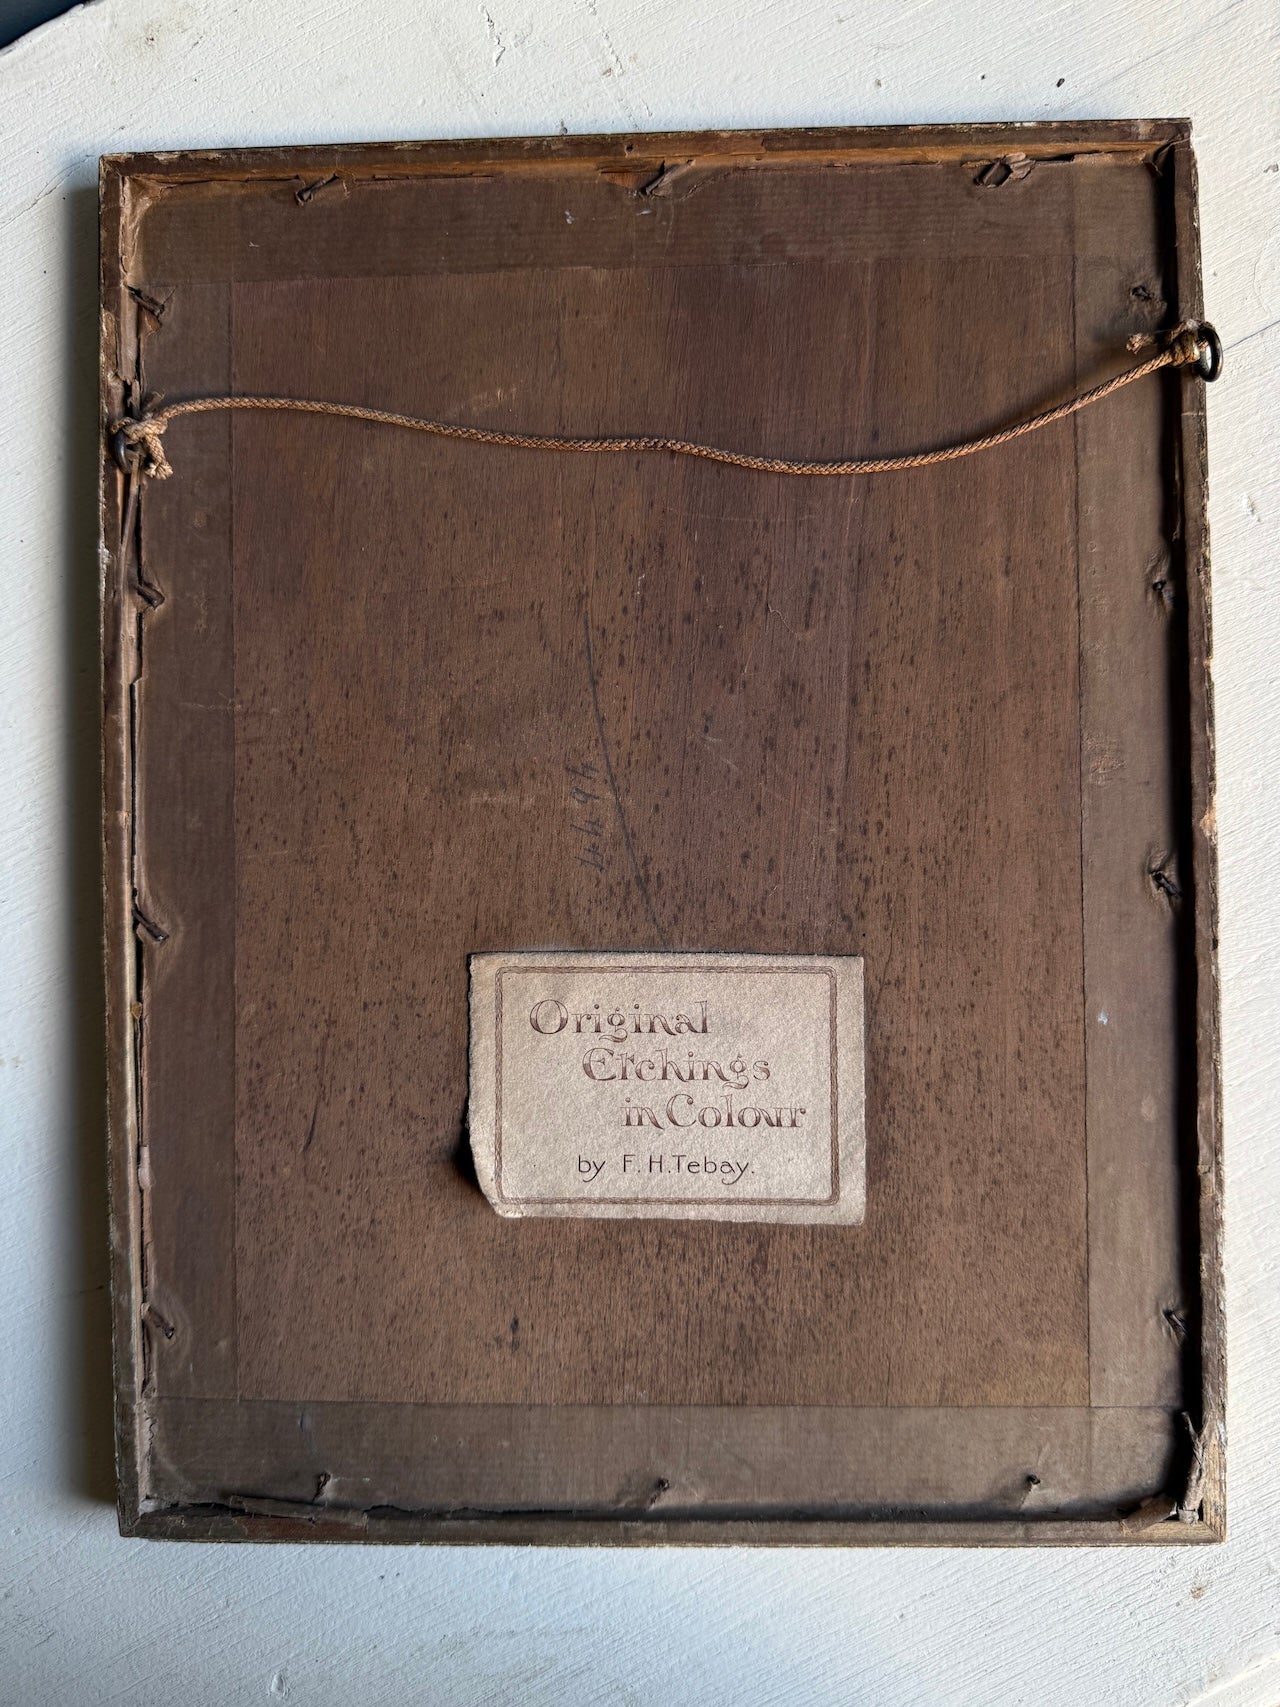 Original
Etchings
in Colour
by F. H. Tebay.